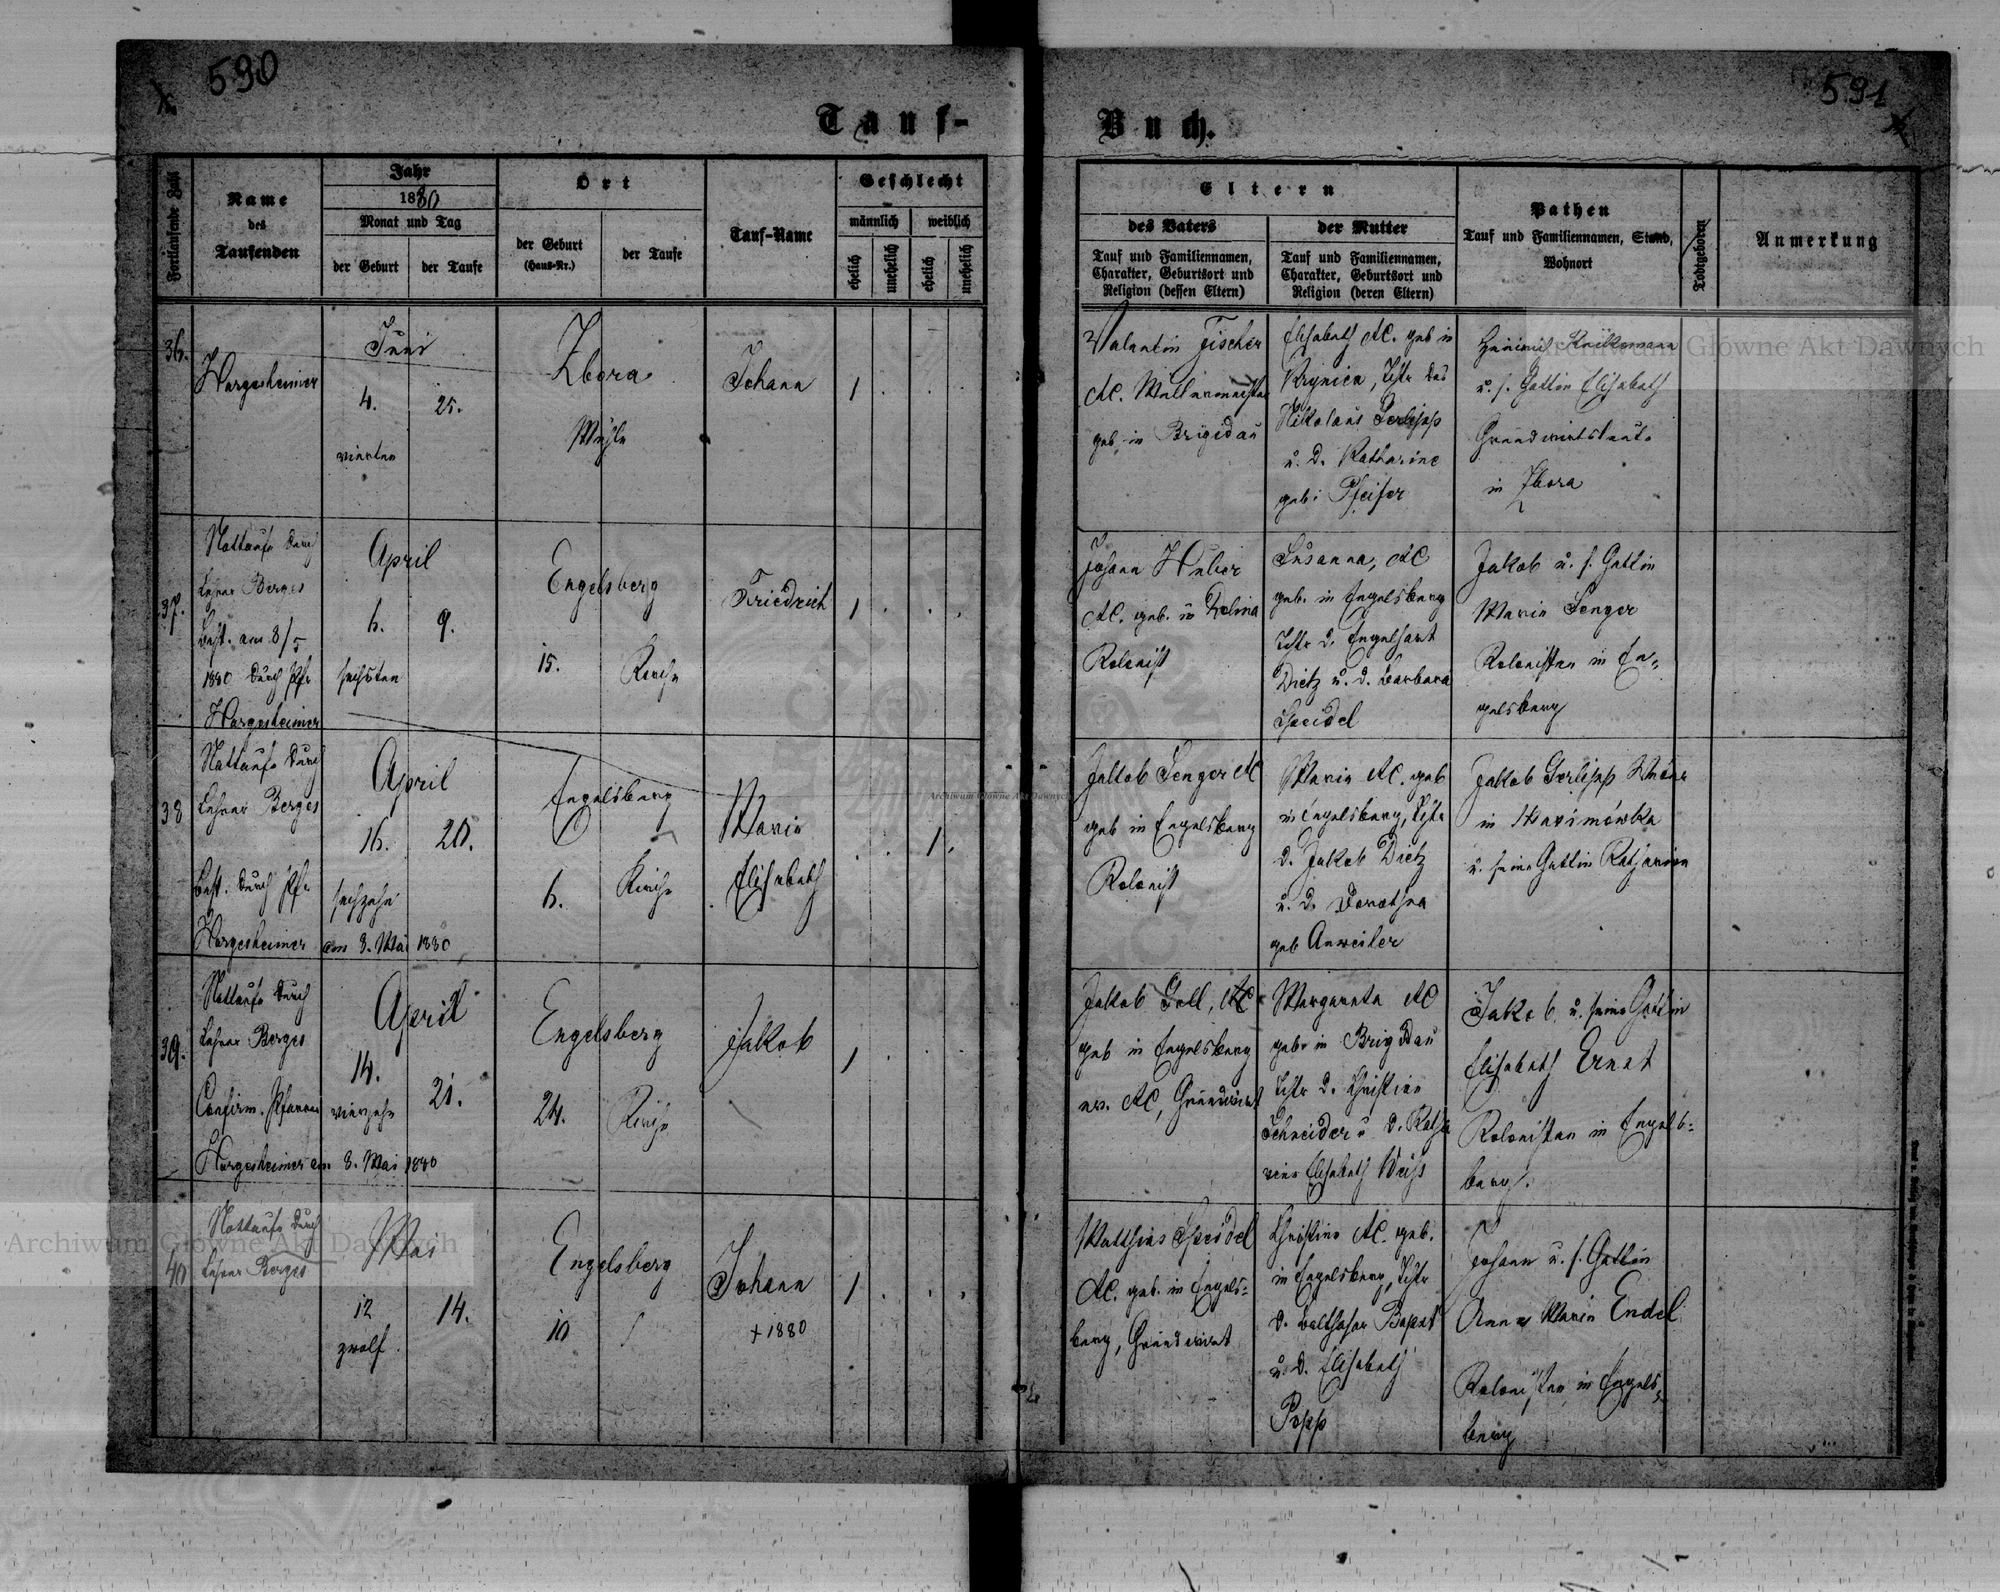 590
591
Tauf-
Buch.
Fortlaufende Zahl
Name
des
Taufenden
Jahr
1880
Monat und Tag
der Geburt
der Taufe
Ort
der Geburt
(Haus-Nr.)
der Taufe
Tauf-Name
Geschlecht
männlich
weiblich
ehelich
unehelich
ehelich
unehelich
Eltern
des Vaters
Tauf und Familiennamen,
Charakter, Geburtsort und
Religion (dessen Eltern)
der Mutter
Tauf und Familiennamen,
Charakter, Geburtsort und
Religion (deren Eltern)
Pathen
Tauf und Familiennamen, Stand,
Wohnort
Todtgeboren
Anmerkung
36.
Hargesheimer
Juni
4.
25.
vierten
Zbora
Mühle
Johann
1
Valentin Fischer
AC. Müllermeister
geb. in Brigidau
Elisabeth AC. geb in
Krynica, Tchtr des
Nikolaus Gerlipp
u. d. Katharine
geb: Pfeifer
u. s. Gattin Elisabeth
Grundwirtsleute
in Zbora
37.
Nottaufe durch
Lehrer Berges
best. am 8/5
1880 durch Pfr
Hargesheimer
April
6.
9.
sechsten
Engelsberg
15.
Kirche
Friedrich
1
Johann Huber
AC. geb. in Dolina
Kolonist
Susanna, AC
geb. in Engelsberg
Tchtr d. Engelhart
Dietz u. d. Barbara
Speidel
Jakob u. s. Gattin
Marie Senger
Kolonisten in En-
gelsberg
38
Nottaufe durch
Lehrer Berges
best. durch Pfr
Hargesheimer am 8. Mai 1880
April
16.
20.
sechzehn
Engelsberg
6.
Kirche
Marie
Elisabeth
1.
Jakob Senger AC
geb in Engelsberg
Kolonist
Marie AC. geb
in Engelsberg, Tchtr
d. Jakob Dietz
u. d. Dorothea
geb Anweiler
Jakob Gerlipp
in Maximówka
u. seine Gattin Katharina
39.
Nottaufe durch
Lehrer Berges
Confirm. Pfarrer
Hargesheimer am 8. Mai 1880
April
14.
21.
vierzehn
Engelsberg
24.
Kirche
Jakob
1
Jakob Goll, AC
geb in Engelsberg
ev. AC, Grundwirt
Margareta AC
geb: in Brigidau
Tchtr d. Christian
Schneider u. d. Katha
rina Elisabeth Weiss
Jakob u. seine Gattin
Elisabeth Ernst
Kolonisten in Engels-
berg.
40
Nottaufe durch
Lehrer Berges
Mai
12
14.
zwölf
Engelsberg
10
Johann
+ 1880
1
Matthias Speidel
AC. geb. in Engels-
berg, Grundwirt
Christine AC. geb.
in Engelsberg, Tchtr
d. Balthasar Bapst
u. d. Elisabeth
Popp
Johann u. s. Gattin
Anna Marie Endel
Kolonisten in Engels-
berg
Archiwum Główne Akt Dawnych
Archiwum Główne Akt Dawnych
Archiwum Główne Akt Dawnych